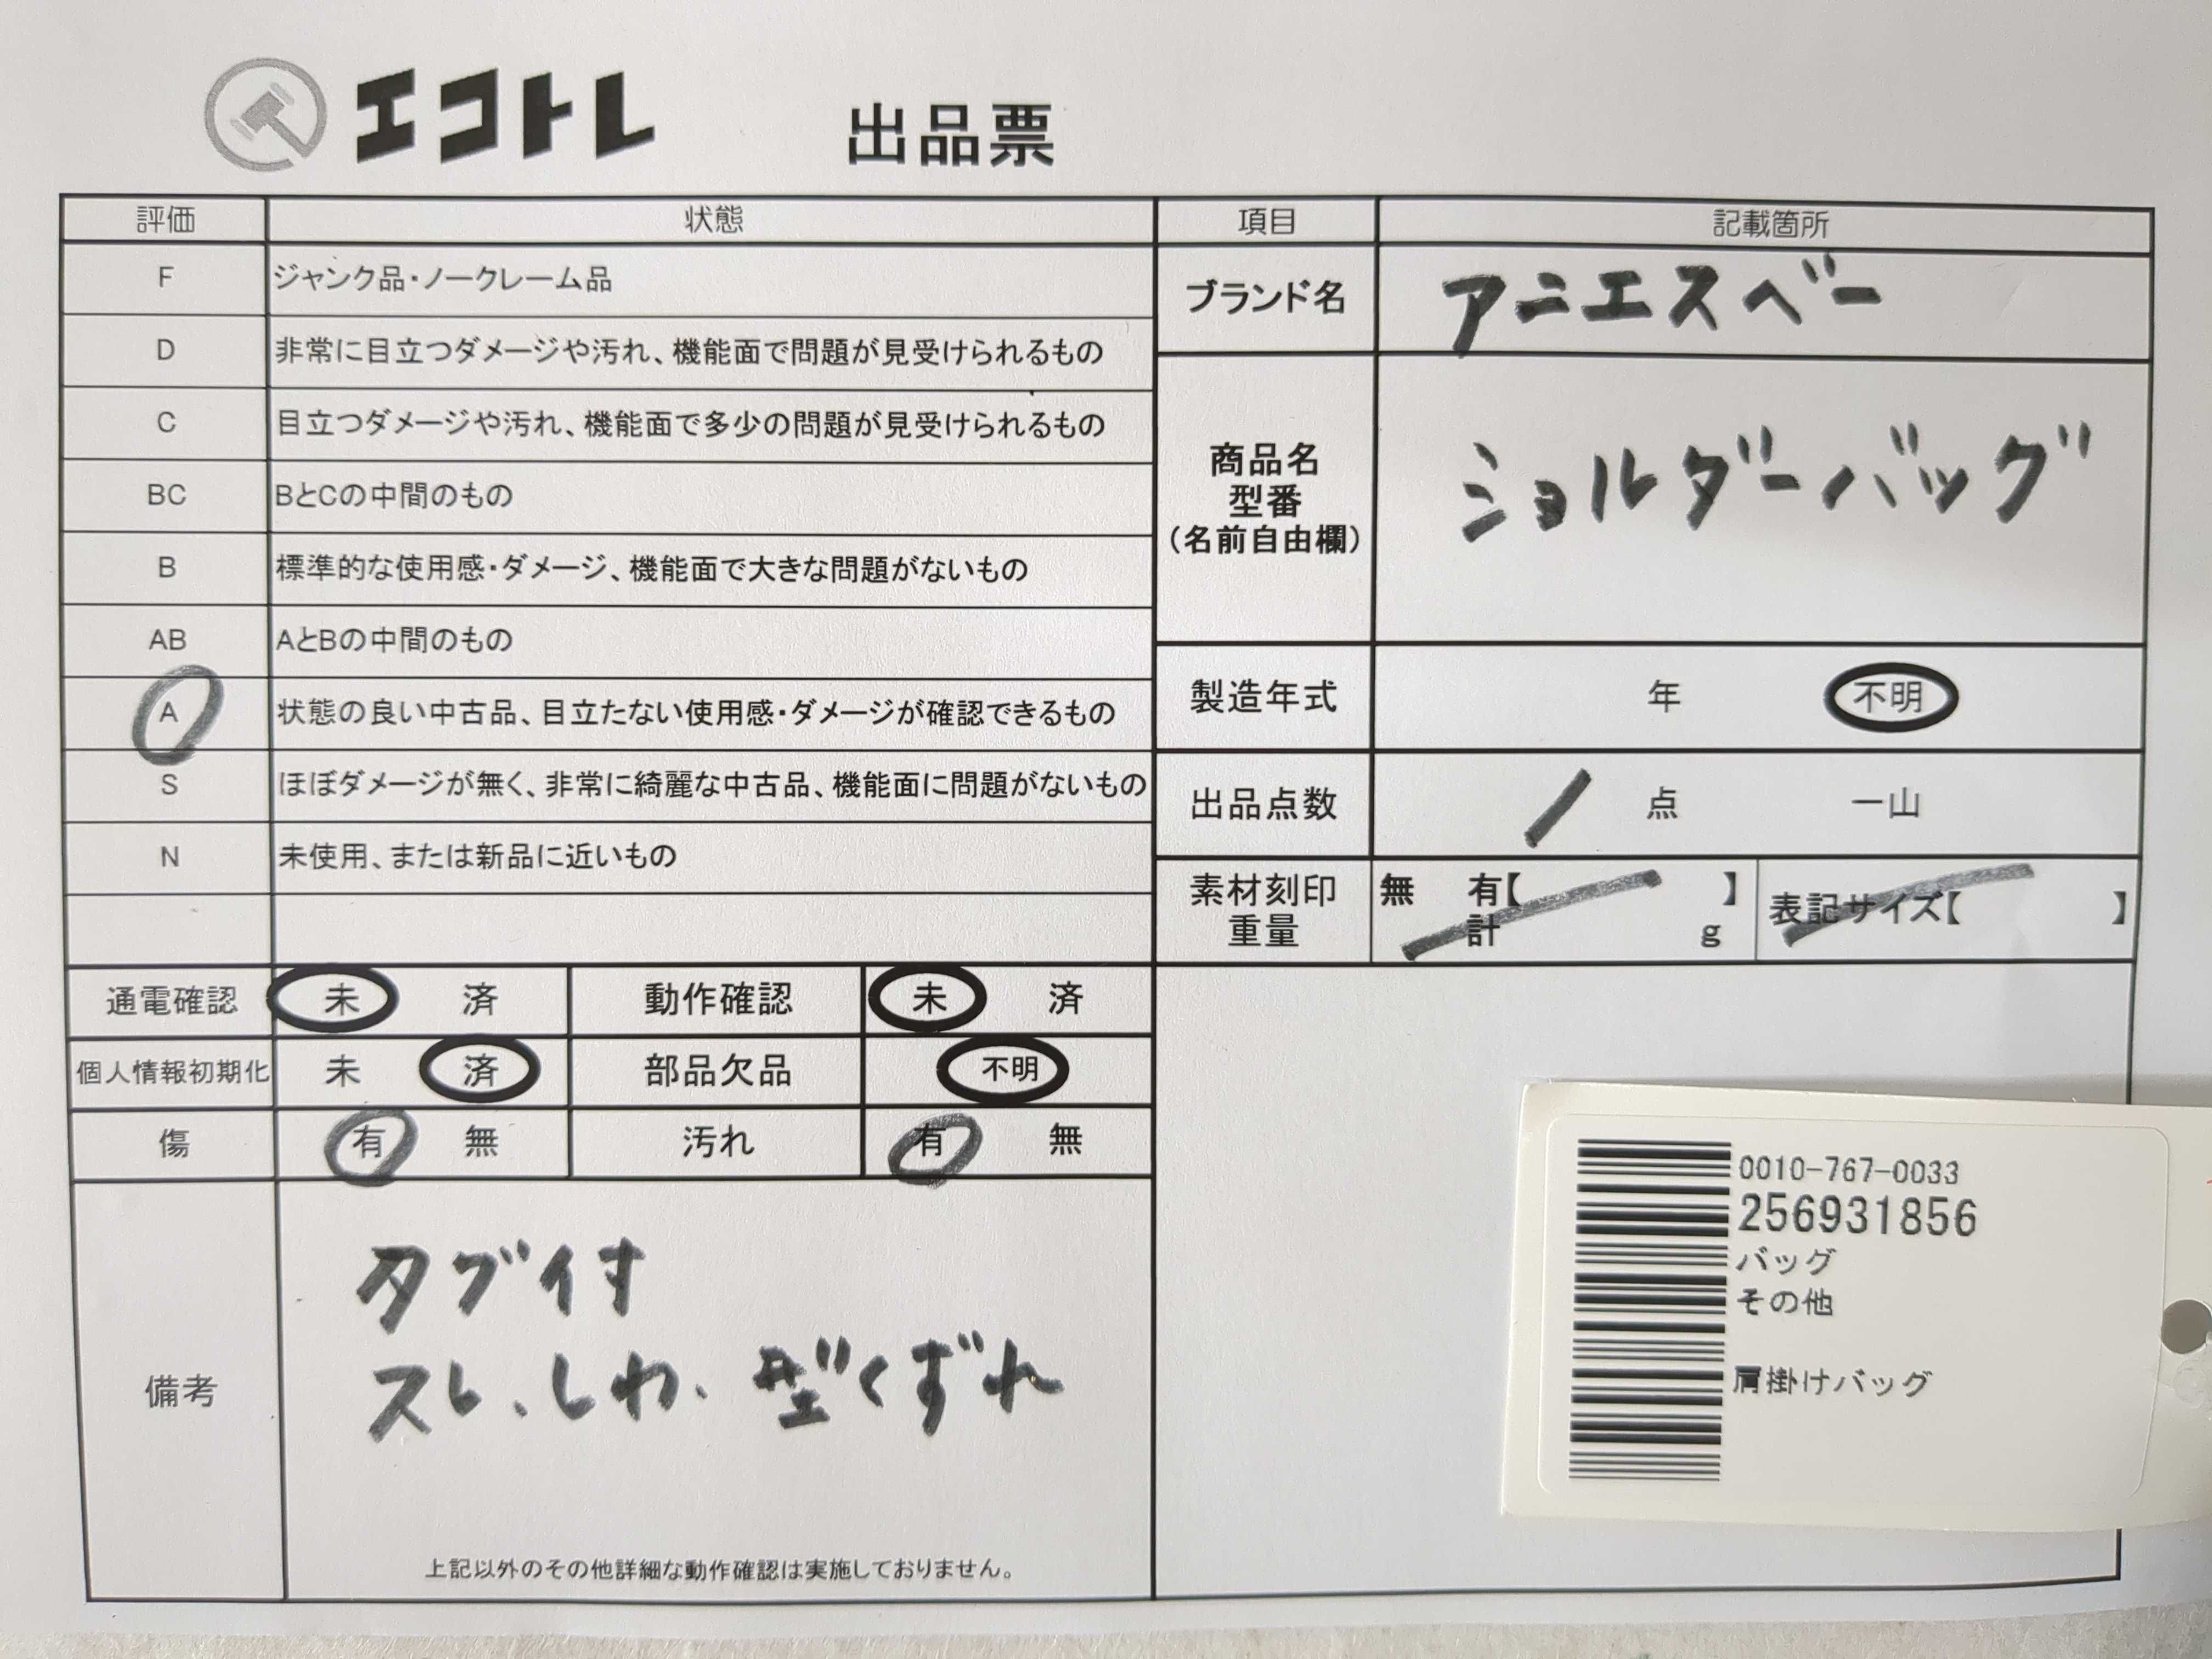 エコトレ 出品票
評価 状態
F ジャンク品・ノークレーム品
D 非常に目立つダメージや汚れ、機能面で問題が見受けられるもの
C 目立つダメージや汚れ、機能面で多少の問題が見受けられるもの
BC BとCの中間のもの
B 標準的な使用感・ダメージ、機能面で大きな問題がないもの
AB AとBの中間のもの
A 状態の良い中古品、目立たない使用感・ダメージが確認できるもの
S ほぼダメージが無く、非常に綺麗な中古品、機能面に問題がないもの
N 未使用、または新品に近いもの
項目 記載箇所
ブランド名 アニエスベー
商品名
型番
(名前自由欄)
ショルダーバッグ
製造年式 年 不明
出品点数 1 点 一山
素材刻印 無 有【 】
重量 計 g
表記サイズ【 】
通電確認 未 済 動作確認 未 済
個人情報初期化 未 済 部品欠品 不明
傷 有 無 汚れ 有 無
備考
タグ付
スレ、しわ、型くずれ
上記以外のその他詳細な動作確認は実施しておりません。
0010-767-0033
256931856
バッグ
その他
肩掛けバッグ